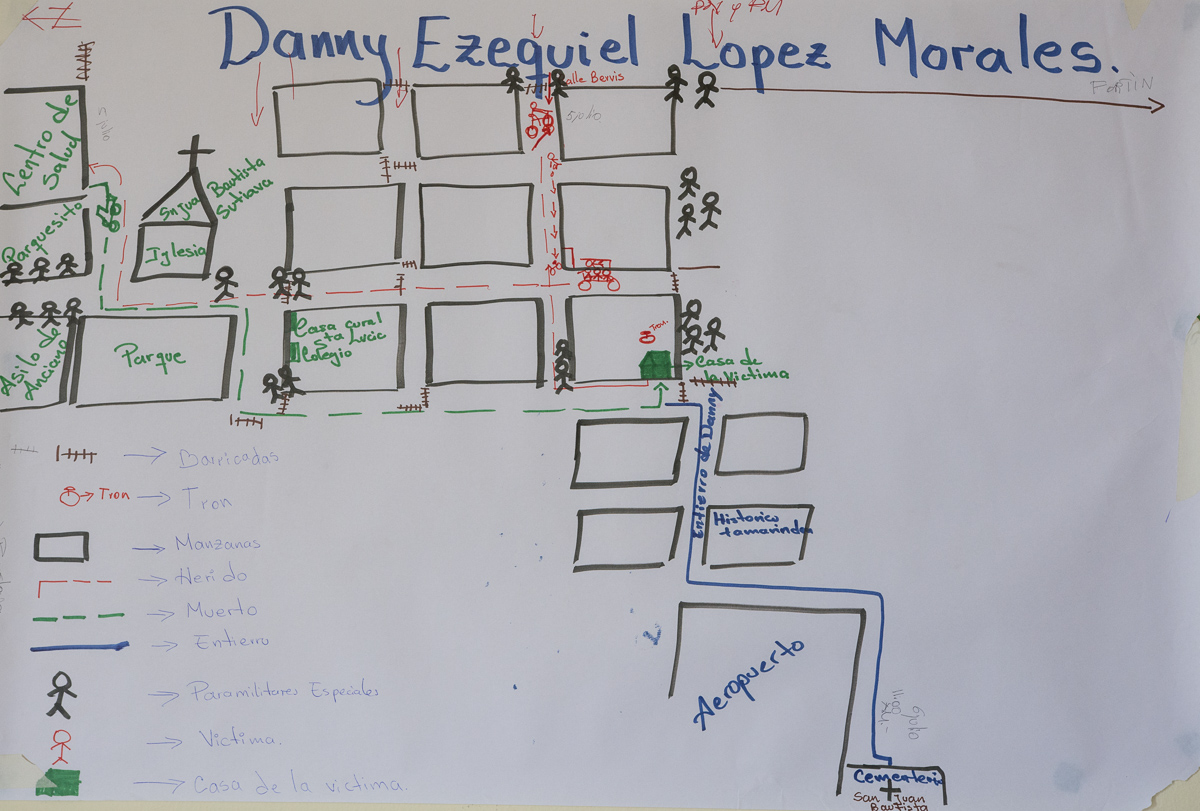 Danny Ezequiel Lopez Morales.
Z
Calle Bervis
5 julio
FORTIN
Centro de
Salud
5 julio
Parquesito
Sn Jua
Bautista
Sutiava
Iglesia
Asilo de
Anciano
Parque
Casa Cural
Sta Lucia
Colegio
Tron.
Casa de
la Victima
Entierro de Danny
Historico
tamarindon
Barricadas
Tron
Tron
Manzanas
Herido
Muerto
Entierro
Paramilitares Especiales
Victima.
Casa de la victima.
Aeropuerto
11:00
6 julio
Cementerio
San Juan
Bautista